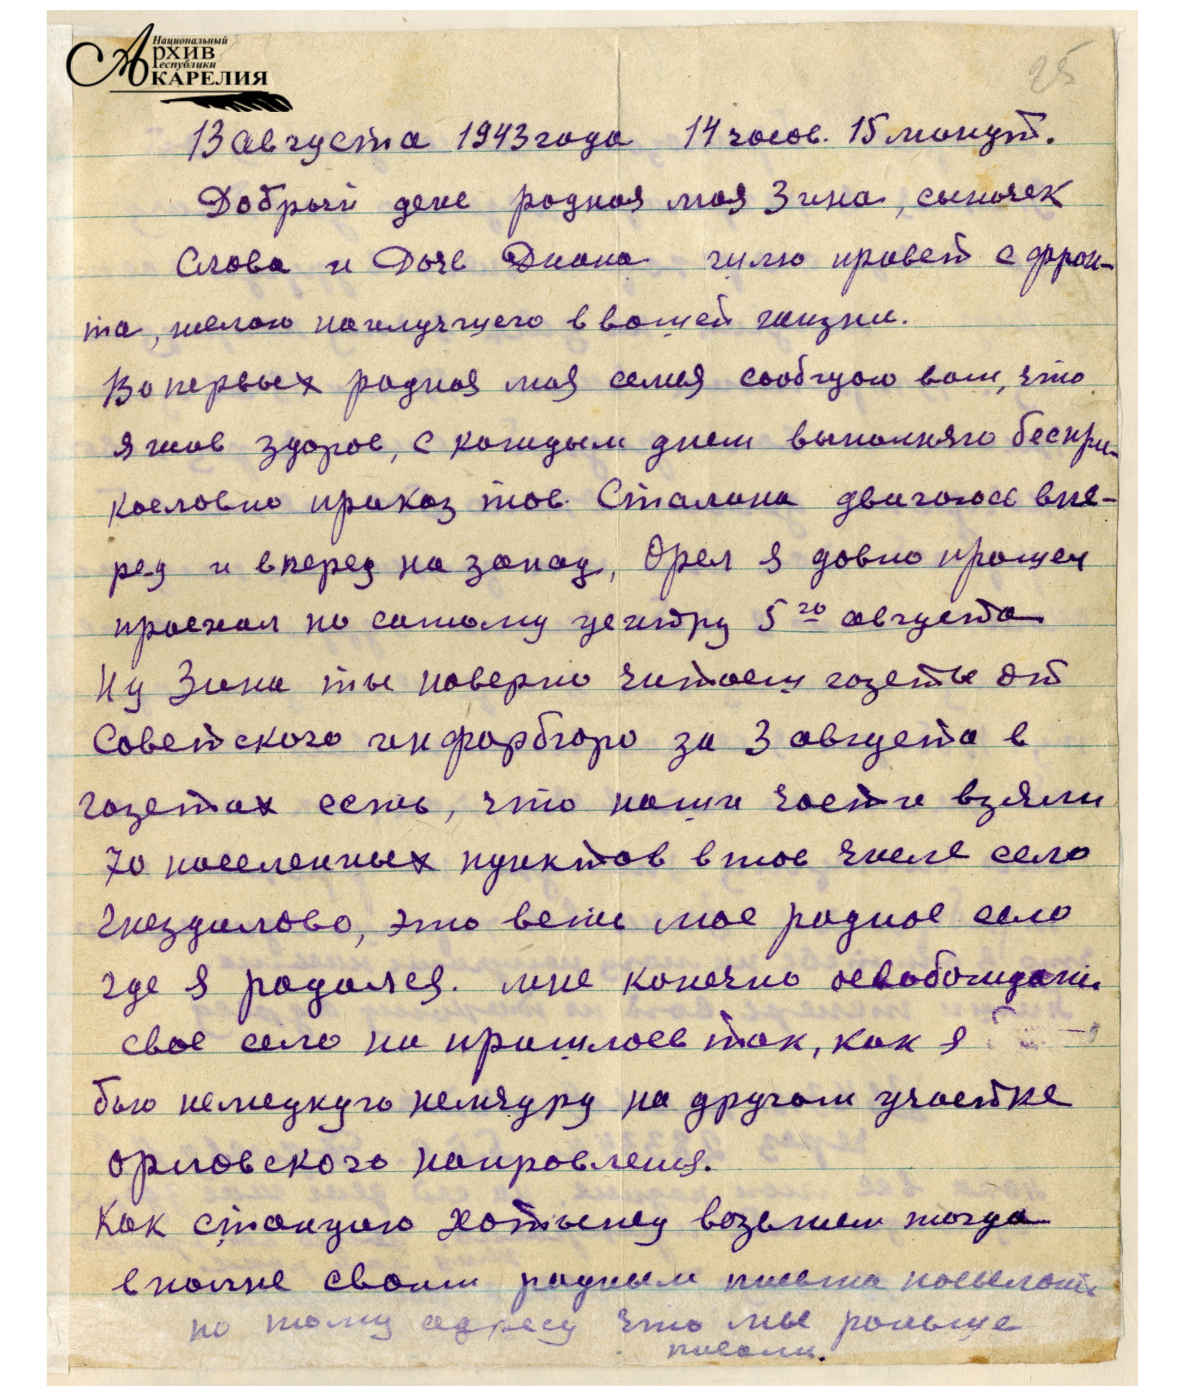 Национальный
АРХИВ
Республики
КАРЕЛИЯ
25
13 августа 1943 года 14 часов. 15 минут.
Добрый день родная моя Зина, сыночек
Слава и Дочь Диана шлю привет с фрон-
та, желаю наилучшего в вашей жизни.
Во первых родная моя семья сообщаю вам, что
я жив здоров, с каждым днем выполняю беспри-
кословно приказ тов. Сталина двигаюсь впе-
ред и вперед на запад, Орел я давно прошел
проехал по самому центру 5го августа
Ну Зина ты наверно читаеш газеты От
Советского информбюро за 3 августа в
газетах есть, что наши части взяли
70 населенных пунктов в том числе село
Гнездилово, это ведь мое родное село
где я родился. мне конечно освобождать
свое село не пришлось так, как я
бью немецкую немчуру на другом участке
орловского направления.
Как станцию Хотынец возьмем тогда
вполне своим родным письма посылать
по тому адресу что мы раньше
писали.